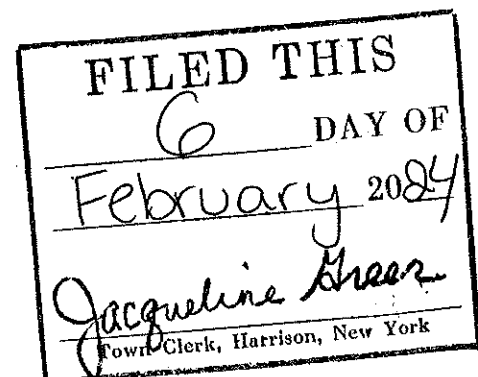 FILED THIS
6 DAY OF
February 2024
Jacqueline Greer
Town Clerk, Harrison, New York